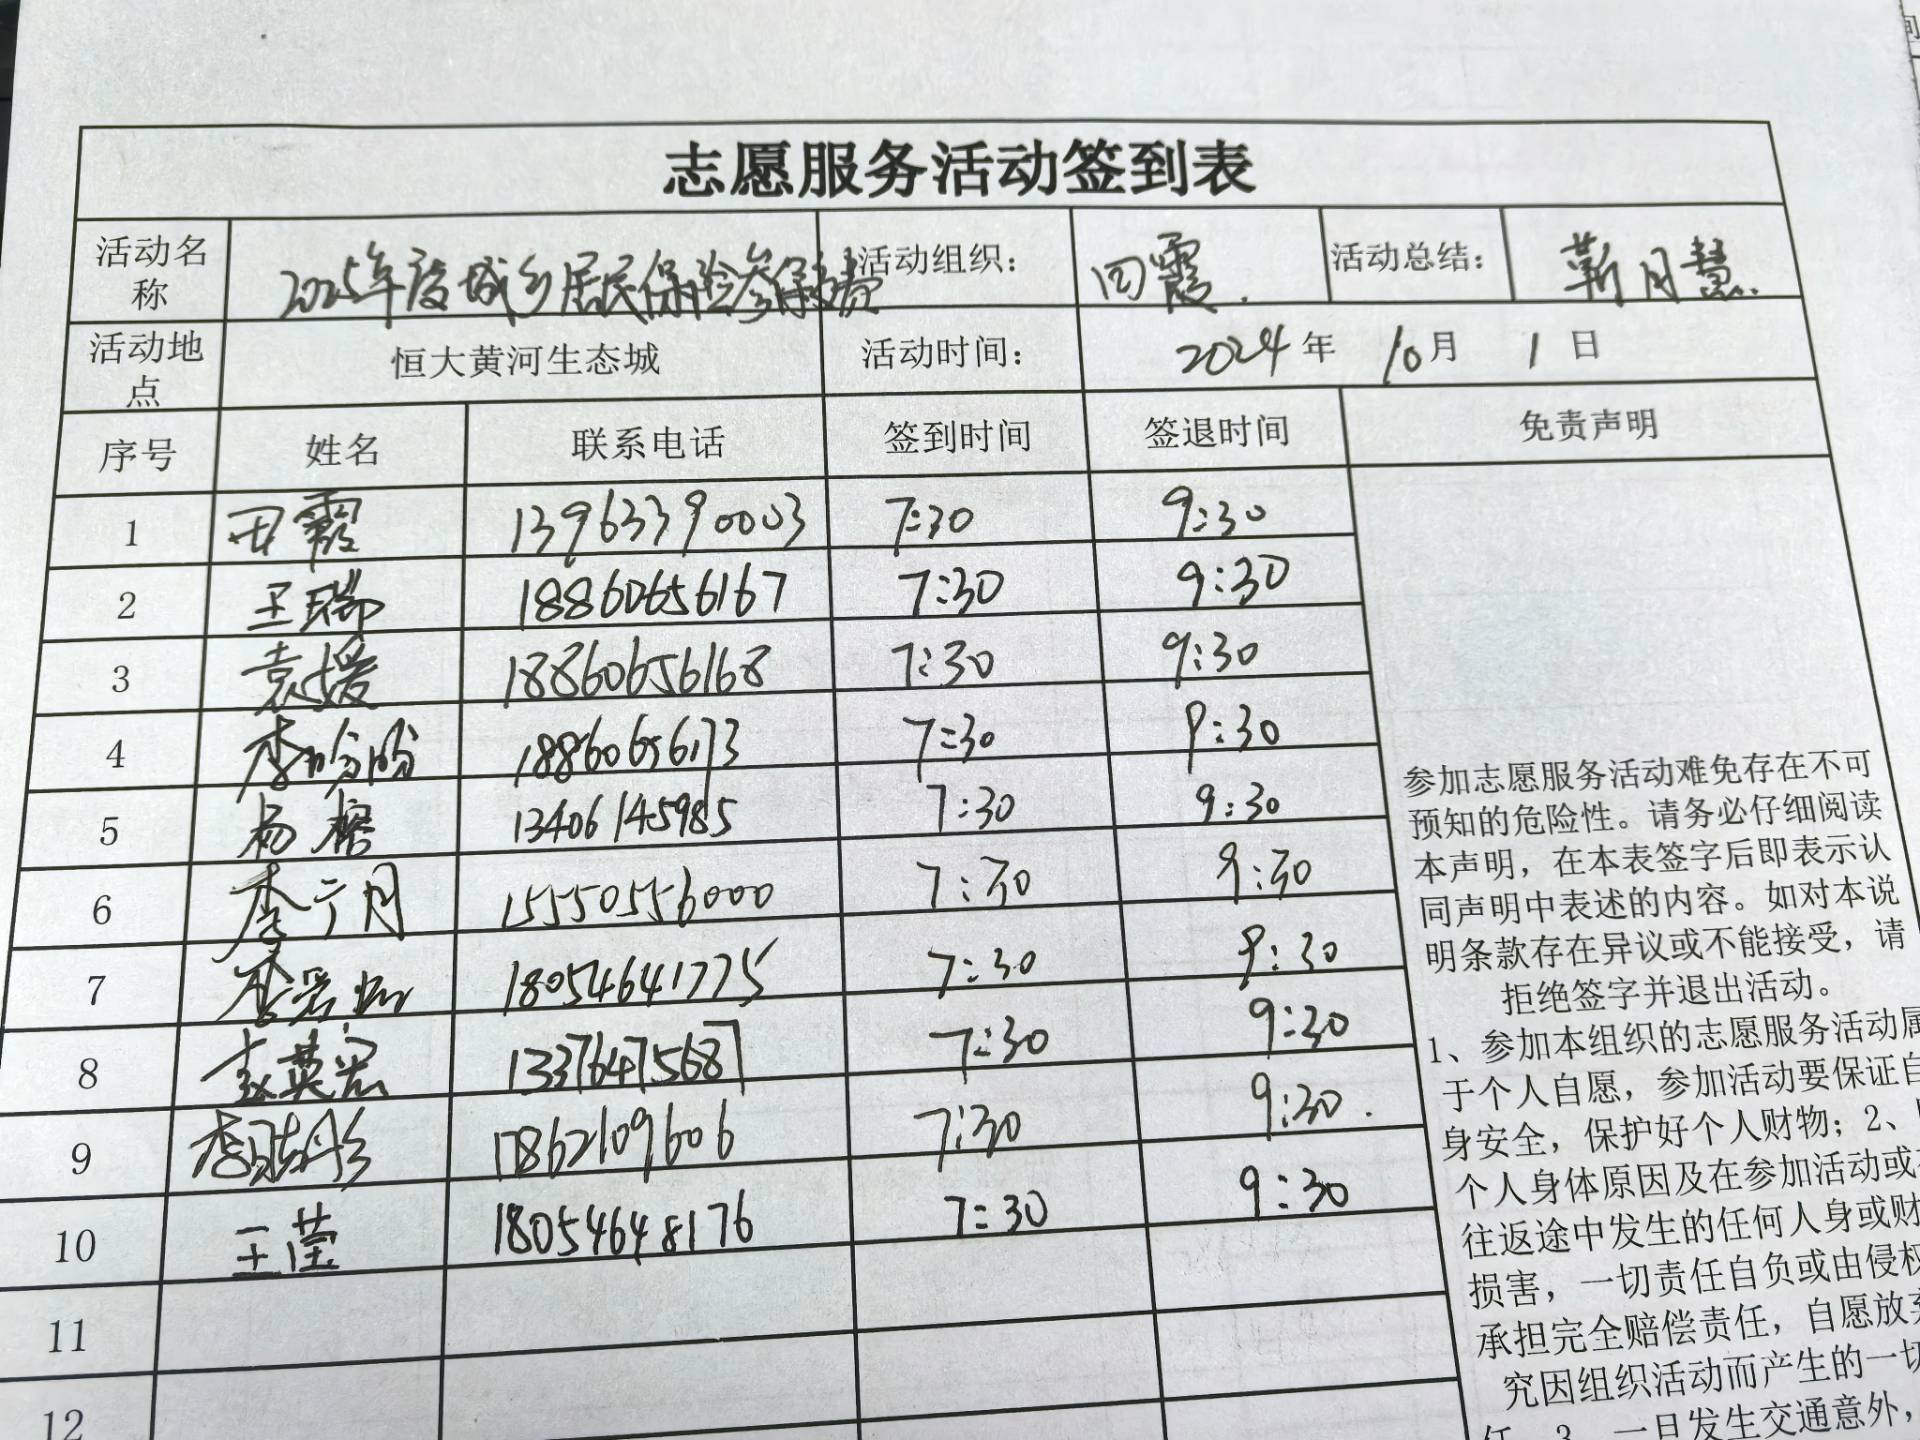 志愿服务活动签到表
活动名称 2025年度城乡居民保险参保缴费 活动组织： 田霞. 活动总结： 靳月慧
活动地点 恒大黄河生态城 活动时间： 2024年 10月 1日
序号 姓名 联系电话 签到时间 签退时间 免责声明
1 田霞 13963390003 7:30 9:30
2 王瑞 18860656167 7:30 9:30
3 袁媛 18860656168 7:30 9:30
4 李盼盼 18860656173 7:30 9:30
5 杨榕 13406145985 7:30 9:30
6 李宁月 15550556000 7:30 9:30
7 李 18054641775 7:30 9:30
8 赵英宏 13376475687 7:30 9:30
9 李 17862109606 7:30 9:30.
10 王莹 18054648176 7:30 9:30
11
12
参加志愿服务活动难免存在不可
预知的危险性。请务必仔细阅读
本声明，在本表签字后即表示认
同声明中表述的内容。如对本说
明条款存在异议或不能接受，请
拒绝签字并退出活动。
1、参加本组织的志愿服务活动属
于个人自愿，参加活动要保证自
身安全，保护好个人财物；2、
个人身体原因及在参加活动或
往返途中发生的任何人身或财
损害，一切责任自负或由侵权
承担完全赔偿责任，自愿放弃
究因组织活动而产生的一切
任。3、一旦发生交通意外，